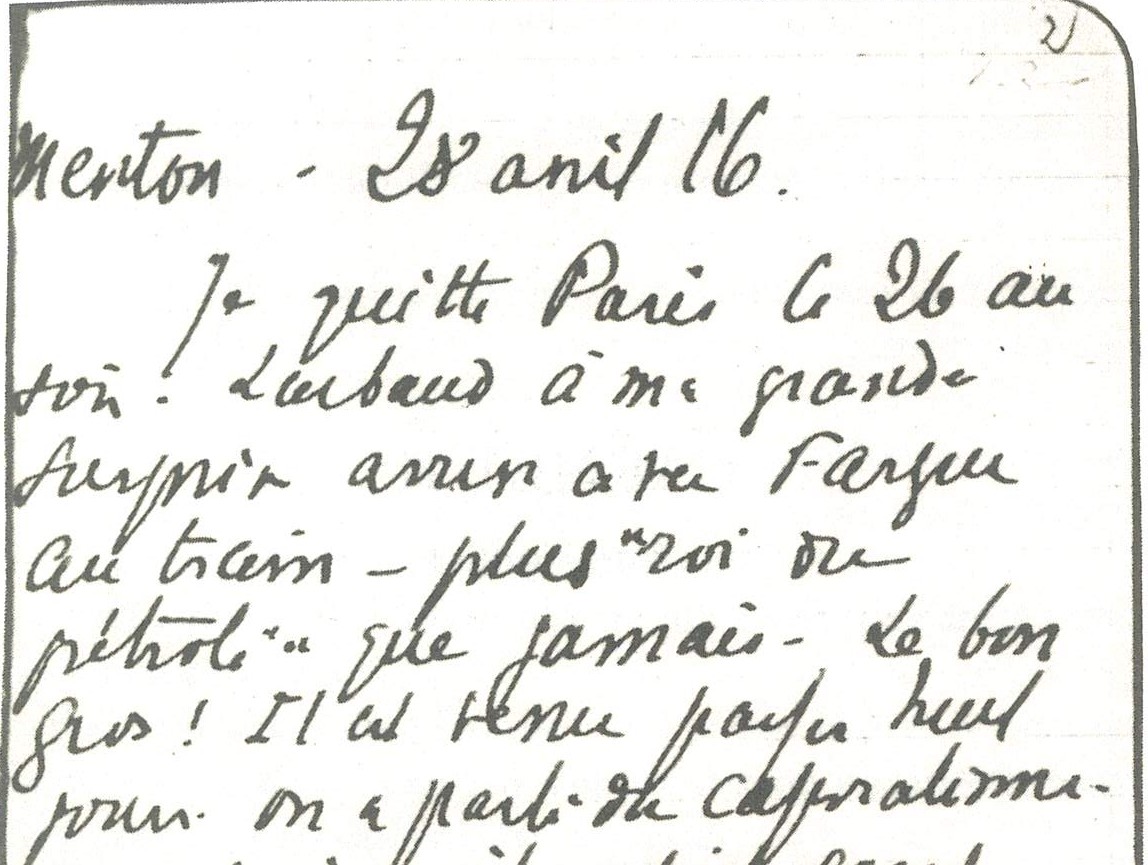 2)
Menton - 28 avril 16.
Je quitte Paris le 26 au
soir. Larbaud à ma grande
surprise arrive avec Fargue
au train - plus "roi du
pétrole" que jamais - Le bon
gros ! Il est venu passer huit
jours. On a parlé du